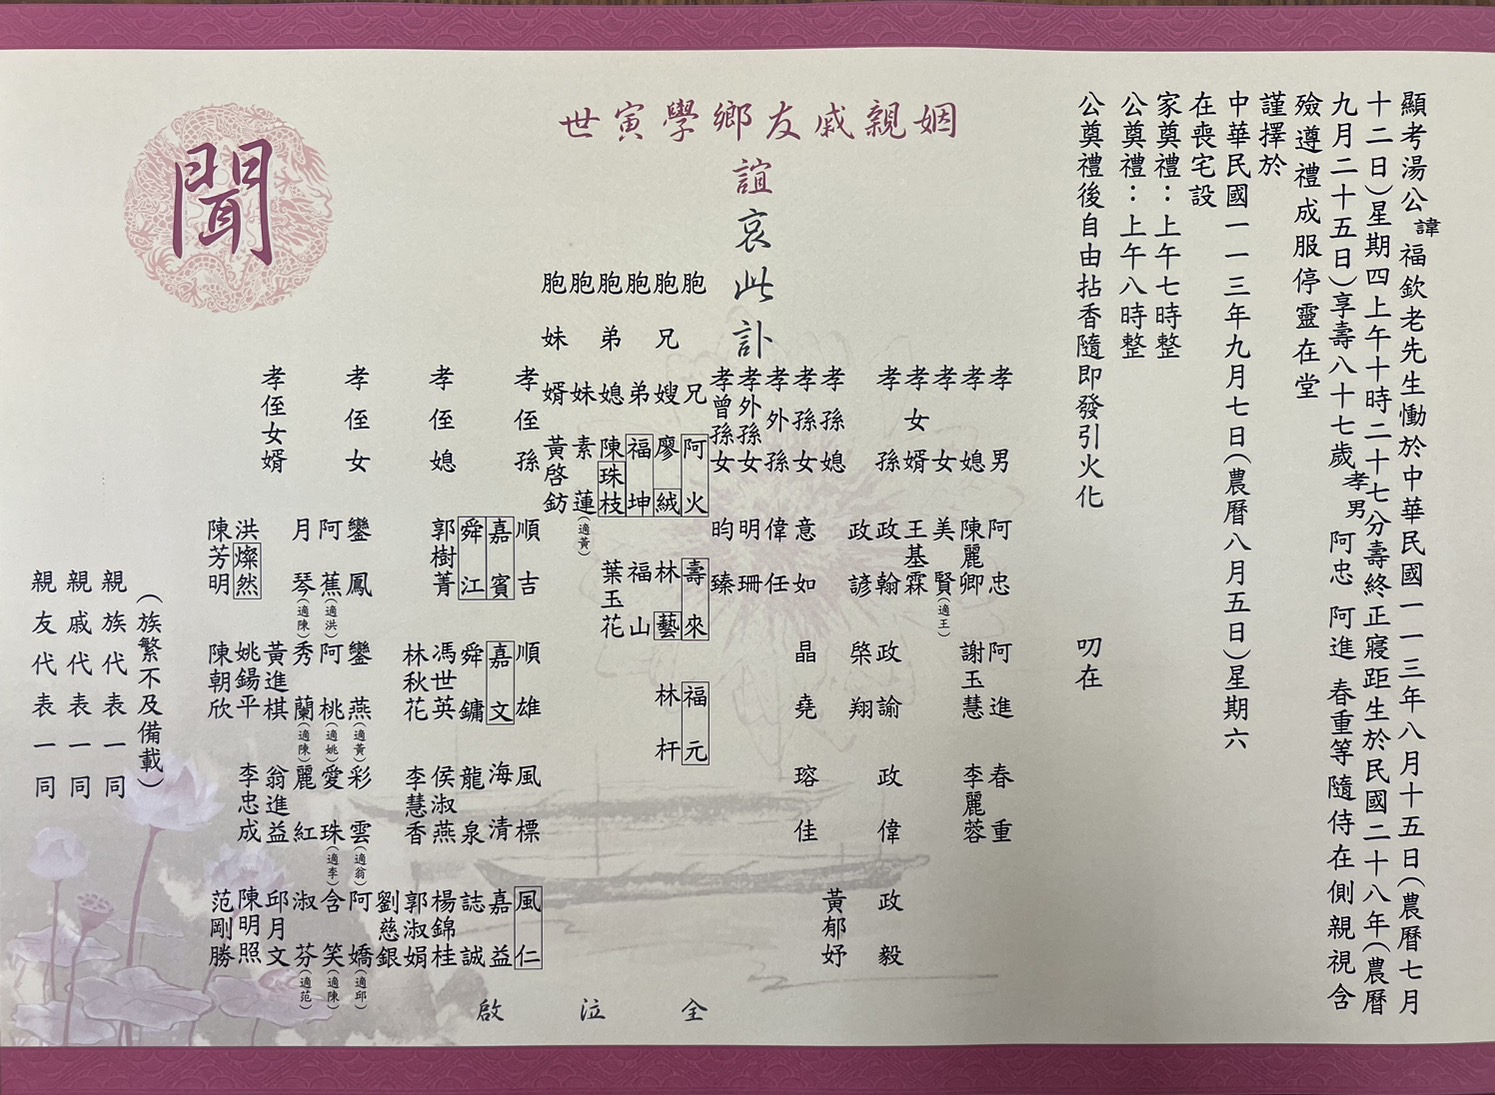 顯考湯公諱福欽老先生慟於中華民國一一三年八月十五日（農曆七月
十二日）星期四上午十時二十七分壽終正寢距生於民國二十八年（農曆
九月二十五日）享壽八十七歲孝男 阿忠 阿進 春重等隨侍在側親視含
殮遵禮成服停靈在堂
謹擇於
中華民國一一三年九月七日（農曆八月五日）星期六
在喪宅設
家奠禮：上午七時整
公奠禮：上午八時整
公奠禮後自由拈香隨即發引火化 叨在
姻親戚友鄉學寅世
誼
哀此訃
聞
孝男 阿忠 阿進 春重
孝媳 陳麗卿 謝玉慧 李麗蓉
孝女 美賢（適王）
孝女婿 王基霖
孝孫 政翰 政諭 政偉 政毅
政諺 棨翔
孝孫媳 黃郁妤
孝孫女 意如 晶堯 瑢佳
孝外孫 偉任
孝外孫女 明珊
孝曾孫女 昀臻
胞兄 阿火 壽來 福元
胞兄嫂 廖絨 林藝 林杆
胞弟 福坤 福山
胞弟媳 陳珠枝 葉玉花
胞妹 素蓮（適黃）
胞妹婿 黃啓鈁
孝侄孫 順吉 順雄 風標 風仁
嘉賓 嘉文 海清 嘉益
舜江 舜鏞 龍泉 誌誠
孝侄媳 郭樹菁 馮世英 侯淑燕 楊錦桂
林秋花 李慧香 郭淑娟
劉慈銀
孝侄女 鑾鳳 鑾燕（適黃） 彩雲（適翁） 阿嬌（適邱）
阿蕉（適洪） 阿桃（適姚） 愛珠（適李） 含笑（適陳）
月琴（適陳） 秀蘭（適陳） 麗紅 淑芬（適范）
孝侄女婿 黃進棋 翁進益 邱月文
洪燦然 姚錫平 李忠成 陳明照
陳芳明 陳朝欣 范剛勝
全泣啟
（族繁不及備載）
親族代表一同
親戚代表一同
親友代表一同